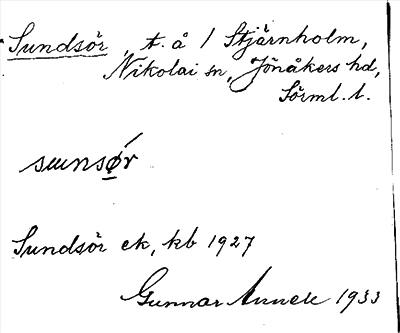 Sundsör, t. å 1 Stjärnholm,
Nikolai sn, Jönåkers hd,
Sörml. l.
sɯnsǿr
Sundsör ek, kb 1927
Gunnar Annell 1933